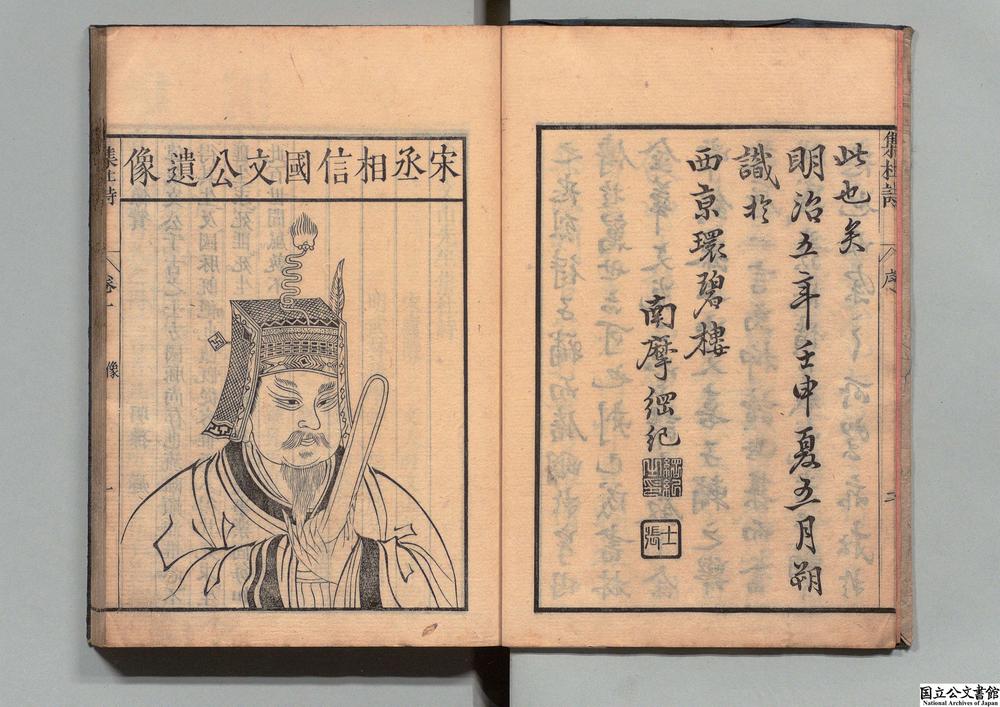 集杜詩
序
二
此也矣
明治五年壬申夏五月朔
識於
西京環碧樓
南摩綱紀
綱紀之印
士張
宋丞相信國文公遺像
集杜詩
卷一
像
一
国立公文書館
National Archives of Japan